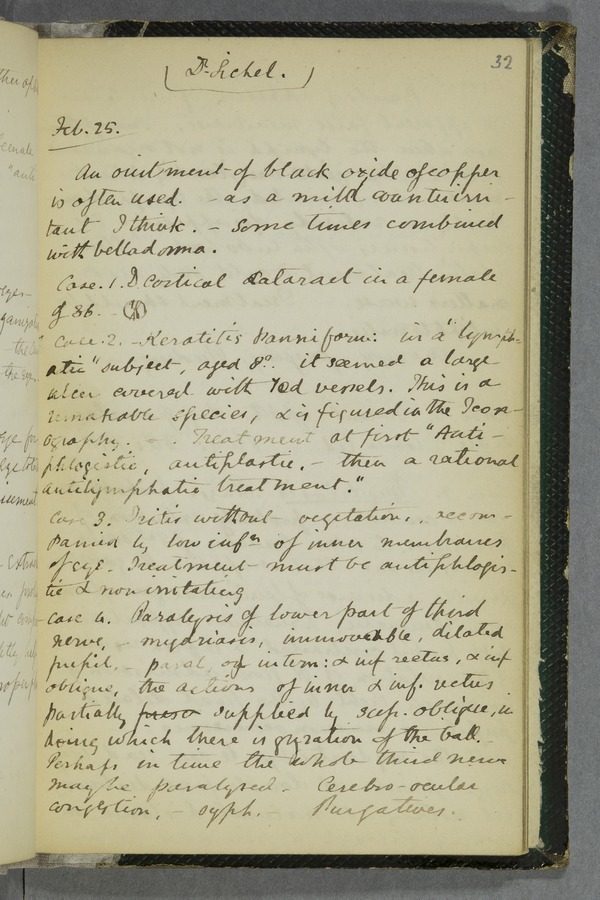 32
Dr. Sichel.
Feb. 25.
An ointment of black oxide of copper
is often used. - as a mild counterirri-
tant I think. - Some times combined
with belladonna.
Case. 1. D Cortical Cataract in a female
of 86. -
Case. 2. - Keratitis Panniform: in a "lymph-
atic" subject, aged 8. it seemed a large
ulcer covered with red vessels. This is a
remarkable species, & is figured in the Icon-
ography. - . Treatment at first "Anti-
phlogistic, antiplastic, - then a rational
antilymphatic treatment."
Case 3. Iritis without vegetation, accom-
panied by low infn of inner membranes
of eye. Treatment must be antiphlogis-
tic & non irritating
Case 4. Paralysis of lower part of third
nerve, - mydriasis, immoveable, dilated
pupil, - paral. of intern: & inf rectus, & inf
oblique, the actions of inner & inf. rectus
partially supplied by sup. oblique, in
doing which there is gyration of the ball.
Perhaps in time the whole third nerve
may be paralysed. Cerebro-ocular
congestion, - syph. - Purgatives.